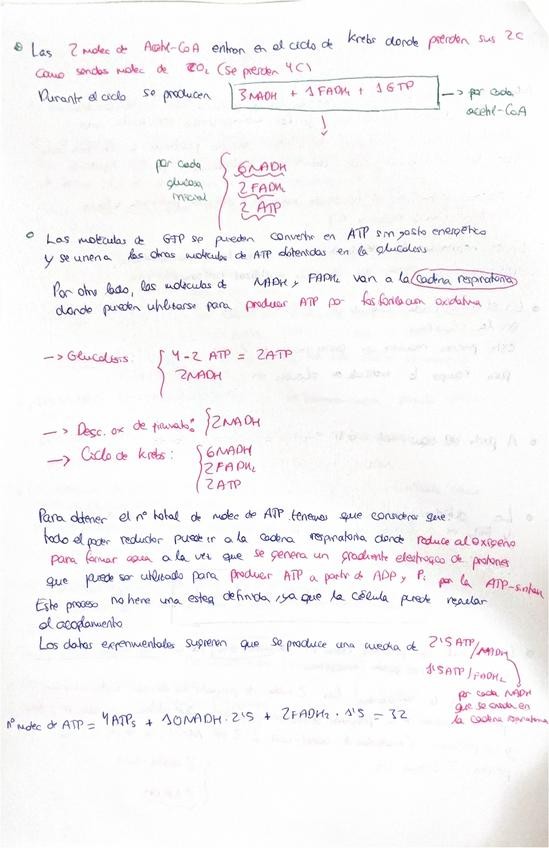 Las 2 molec de Acetil-CoA entran en el ciclo de Krebs donde pierden sus 2C
como sendas molec de CO₂ (se pierden 4C)
Durante el ciclo se producen 3NADH + 1FADH₂ + 1GTP → por cada
acetil-CoA
por cada
glucosa
inicial
6NADH
2FADH₂
2 ATP
Las moléculas de GTP se pueden convertir en ATP sin gasto energético
y se unen a las otras moléculas de ATP obtenidas en la glucólisis
Por otro lado, las moléculas de NADH y FADH₂ van a la cadena respiratoria
donde pueden utilizarse para producir ATP por fosforilación oxidativa
→ Glucólisis { 4-2 ATP = 2ATP
2NADH
→ Desc. ox de piruvato: { 2NADH
→ Ciclo de Krebs: { 6NADH
2FADH₂
2ATP
Para obtener el nº total de molec de ATP tenemos que considerar que
todo el poder reductor puede ir a la cadena respiratoria donde reduce al oxígeno
para formar agua a la vez que se genera un gradiente electroq de protones
que puede ser utilizado para producir ATP a partir de ADP y Pi por la ATP-sintasa
Este proceso no tiene una esteq definida, ya que la célula puede regular
el acoplamiento
Los datos experimentales sugieren que se produce una media de 2'5 ATP/NADH
1'5 ATP/FADH₂
por cada NADH
que se oxida en
la cadena respiratoria
nº molec de ATP = 4ATPs + 10NADH · 2'5 + 2FADH₂ · 1'5 = 32